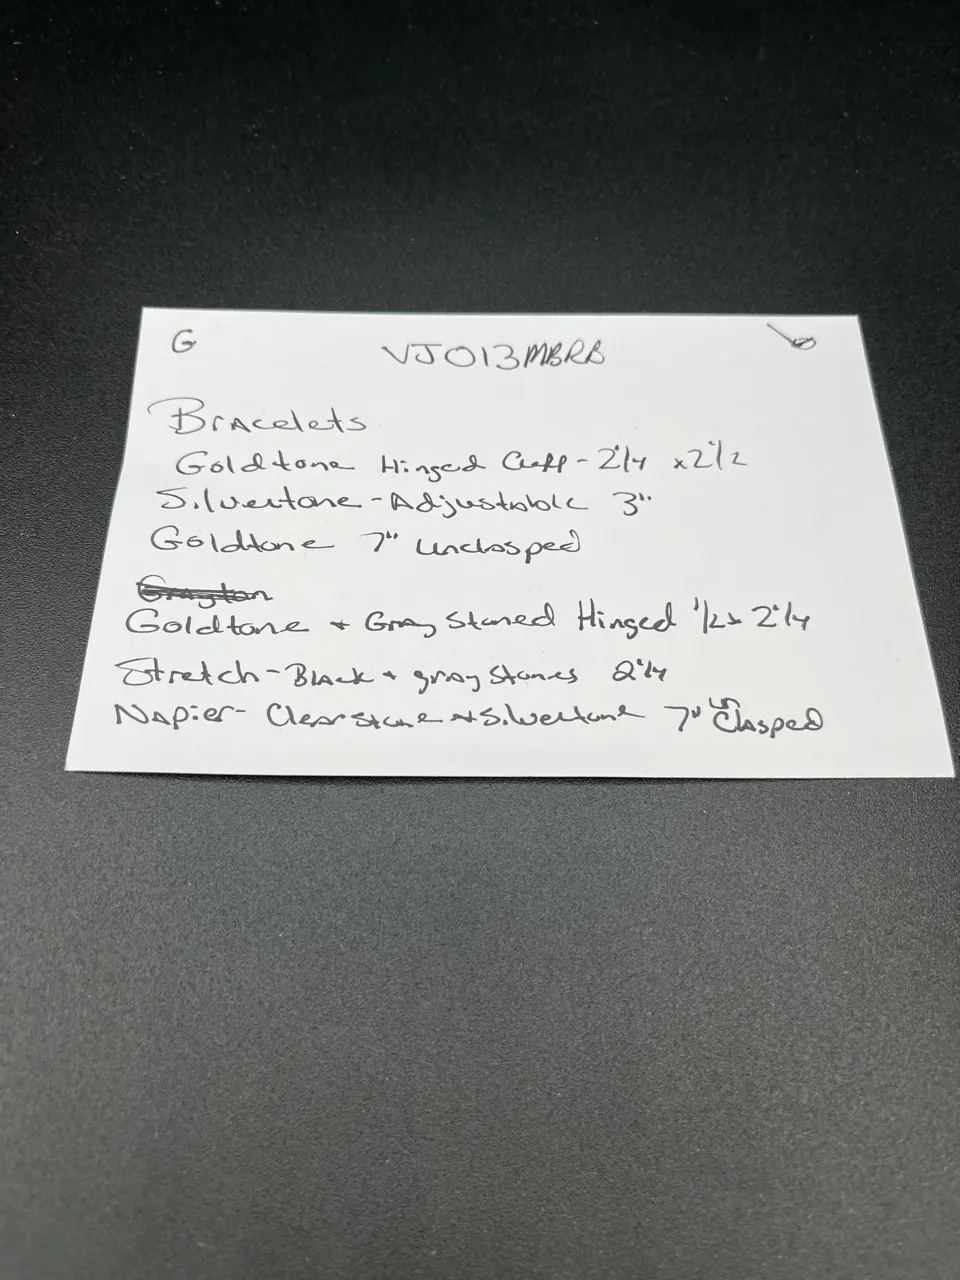 G VJ013MBRB
Bracelets
Goldtone Hinged Cuff - 2 1/4 x 2 1/2
Silvertone - Adjustable 3"
Goldtone 7" unclasped
Goldtone + Gray Stoned Hinged 1/2 x 2 1/4
Stretch - Black + gray Stones 2 1/4
Napier - Clear Stone + Silvertone 7" Clasped